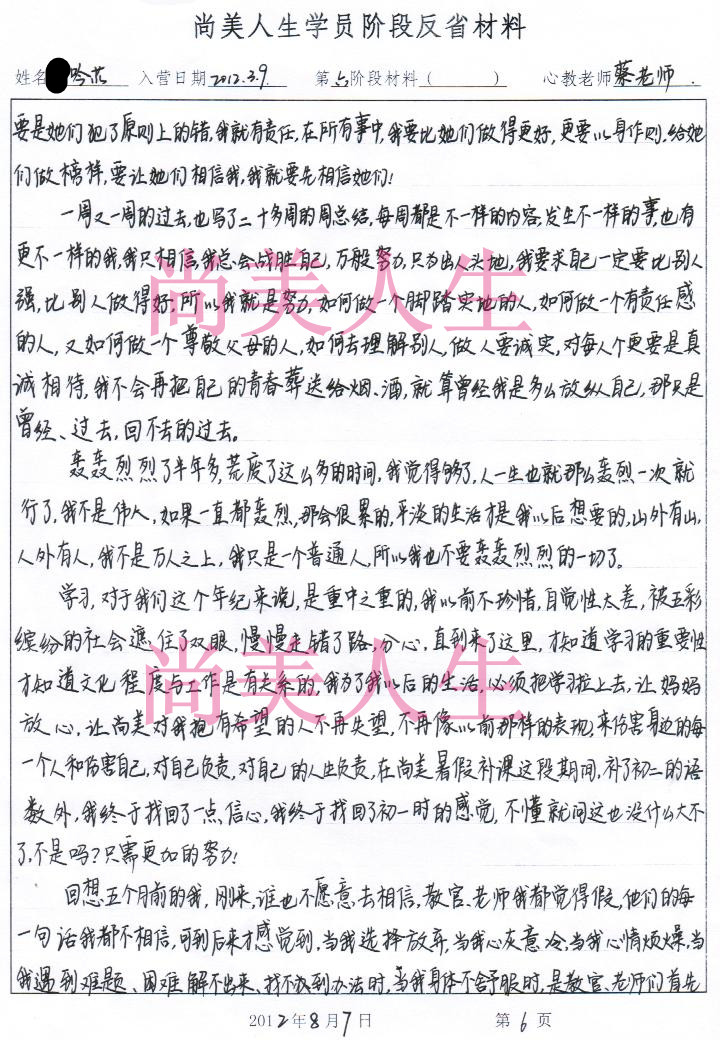 尚美人生学员阶段反省材料
姓名 吟芯 入营日期 2012.3.9. 第六阶段材料（ ） 心教老师 蔡老师.
要是她们犯了原则上的错,我就有责任,在所有事中,我要比她们做得更好,更要以身作则,给她
们做榜样,要让她们相信我,我就要先相信她们!
一周又一周的过去,也写了二十多周的周总结,每周都是不一样的内容,发生不一样的事,也有
更不一样的我,我只相信,我总会战胜自己,万般努力,只为出人头地,我要求自己一定要比别人
强,比别人做得好,所以我就是努力,如何做一个脚踏实地的人,如何做一个有责任感
的人,又如何做一个尊敬父母的人,如何去理解别人,做人要诚实,对每人个更要是真
诚相待,我不会再把自己的青春葬送给烟、酒,就算曾经我是多么放纵自己,那只是
曾经、过去,回不去的过去。
轰轰烈烈了半年多,荒废了这么多的时间,我觉得够了,人一生也就那么轰烈一次就
行了,我不是伟人,如果一直都轰烈,那会很累的,平淡的生活才是我以后想要的,山外有山,
人外有人,我不是万人之上,我只是一个普通人,所以我也不要轰轰烈烈的一切了。
学习,对于我们这个年纪来说,是重中之重的,我以前不珍惜,自觉性太差,被五彩
缤纷的社会遮住了双眼,慢慢走错了路,分心,直到来了这里,才知道学习的重要性
才知道文化程度与工作是有关系的,我为了我以后的生活,必须把学习拉上去,让妈妈
放心,让尚美对我抱有希望的人不再失望,不再像以前那样的表现,来伤害身边的每
一个人和伤害自己,对自己负责,对自己的人生负责,在尚美暑假补课这段期间,补了初二的语
数外,我终于找回了一点信心,我终于找回了初一时的感觉,不懂就问这也没什么大不
了,不是吗?只需更加的努力!
回想五个月前的我,刚来,谁也不愿意去相信,教官、老师我都觉得假,他们的每
一句话我都不相信,可到后来才感觉到,当我选择放弃,当我心灰意冷,当我心情烦燥,当
我遇到难题、困难解不出来、找不到办法时,当我身体不舒服时,是教官、老师们首先
2012年8月7日 第 6 页
尚美人生
尚美人生